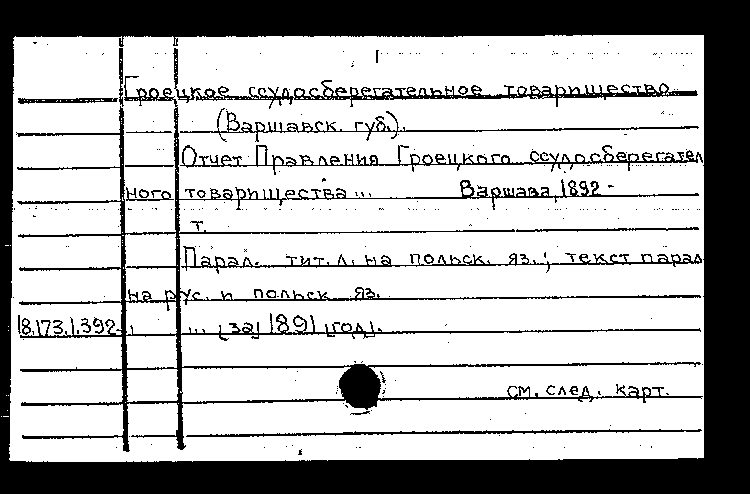 Гроецкое ссудосберегательное товарищество
(Варшавск. губ.).
Отчет Правления Гроецкого ссудосберегател
ного товарищества... Варшава, 1892 -
т.
Парал. тит. л. на польск. яз.; текст парал
на рус. и польск яз.
18.173.1.392. ... [за] 1891 [год].
см. след. карт.